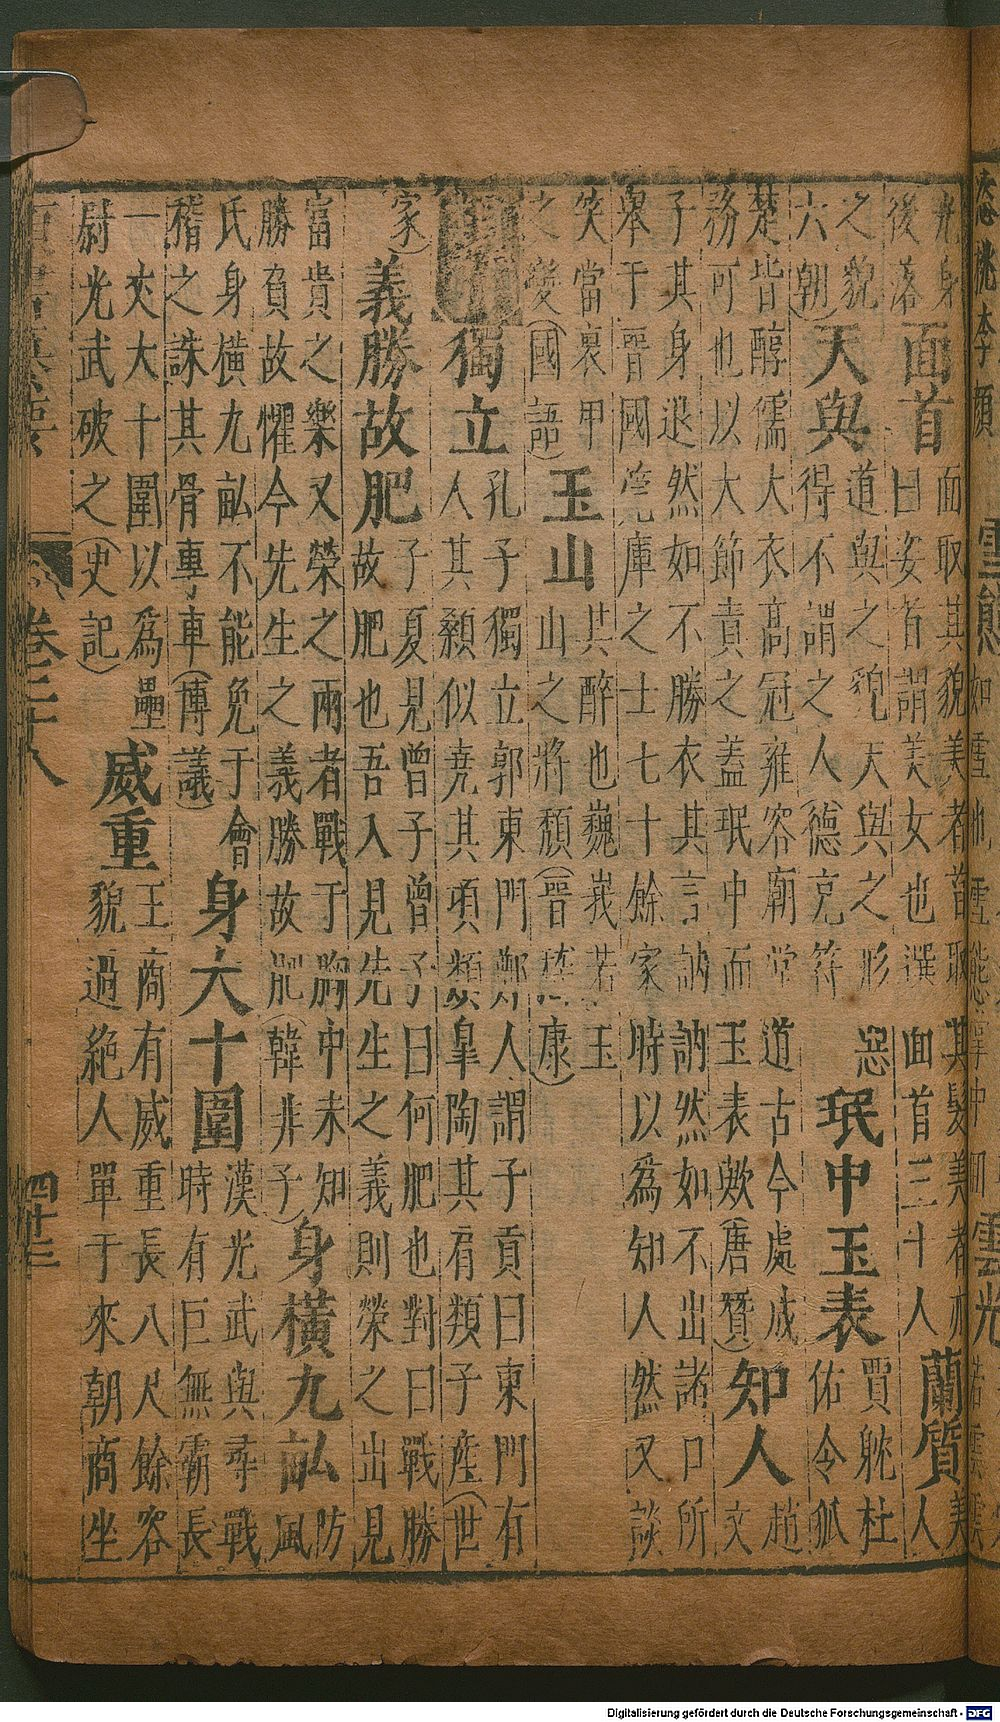 後落
面首
面取其貌美者首取其髮美者亦
曰姿首謂美女也選面首三十人
蘭質
美
人
之貌
六朝）
天與
道與之貌天與之形惡
得不謂之人（德充符
珉中玉表
賈躭杜
佑令狐
楚皆醇儒大衣高冠雍容廟堂道古今處成
務可也以大節責之蓋珉中而玉表歟（唐贊）
知人
趙
文
子其身退然如不勝衣其言訥訥然如不出諸口所
舉于晉國筦庫之士七十餘家時以爲知人然又談
笑當裹甲
之變（國語）
玉山
其醉也巍峩若玉
山之將頹（晉嵇康）
獨立
孔子獨立郭東門鄭人謂子貢曰東門有
人其顙似堯其項類皐陶其肩類子產（世
家）
義勝故肥
子夏見曾子曾子曰何肥也對曰戰勝
故肥也吾入見先生之義則榮之出見
富貴之樂又榮之兩者戰于胸中未知
勝負故懼今先生之義勝故肥（韓非子）
身橫九畝
防
風
氏身橫九畝不能免于會
稽之誅其骨專車（博議）
身大十圍
漢光武與尋戰
時有巨無霸長
一丈大十圍以爲壘
尉光武破之（史記）
威重
王商有威重長八尺餘容
貌過絕人單于來朝商坐
卷三十八
四十三
Digitalisierung gefördert durch die Deutsche Forschungsgemeinschaft - DFG